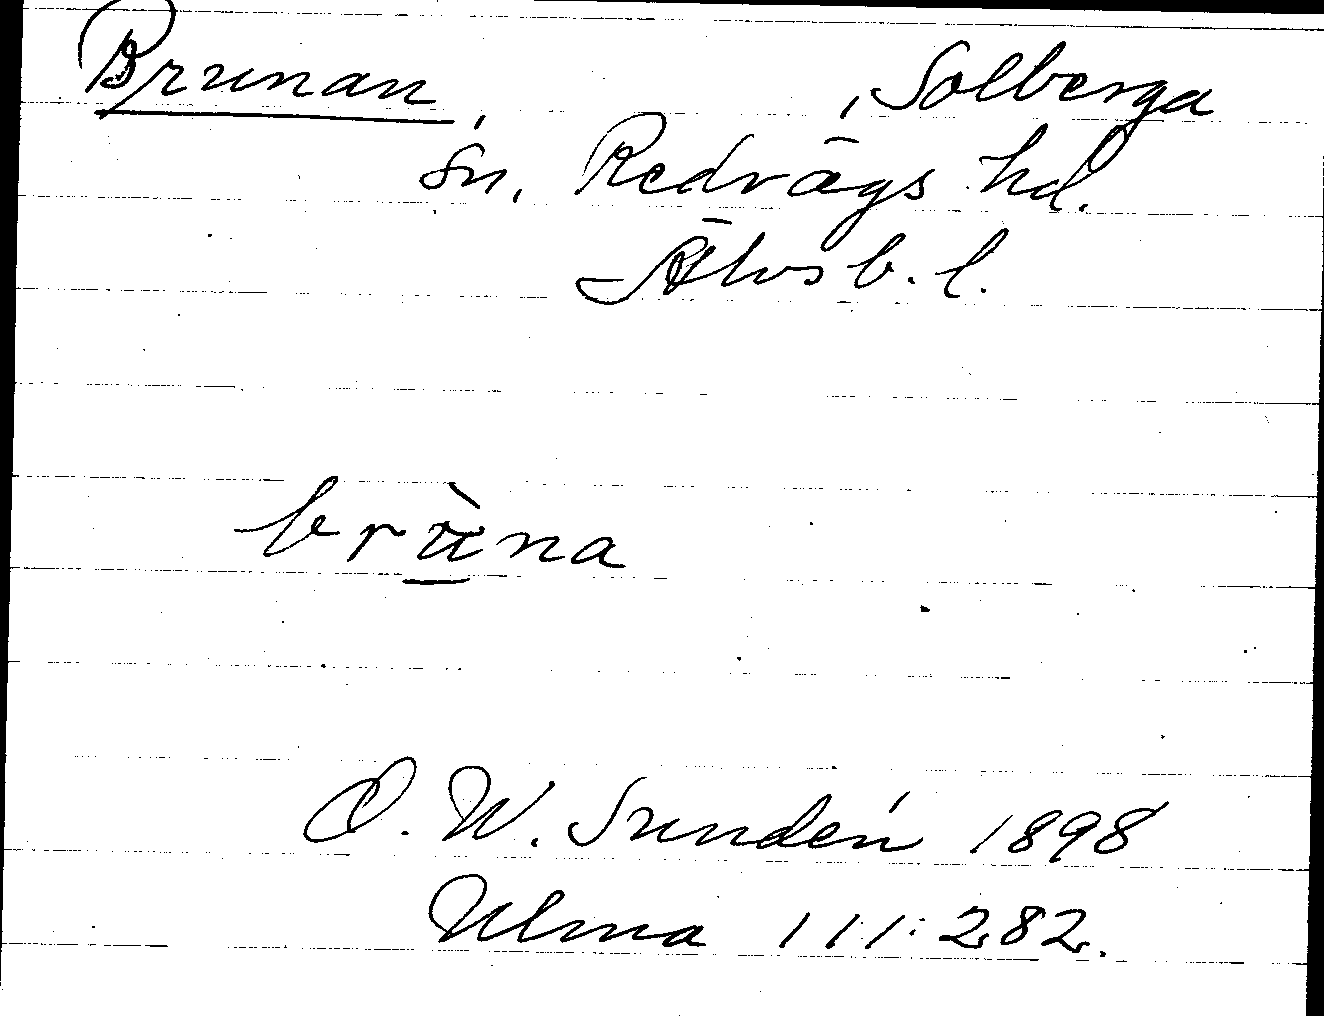 Brunan, , Solberga
sn, Redvägs hd.
Älvsb. l.
brùna
O. W. Sundén 1898
Ulma 111:282.